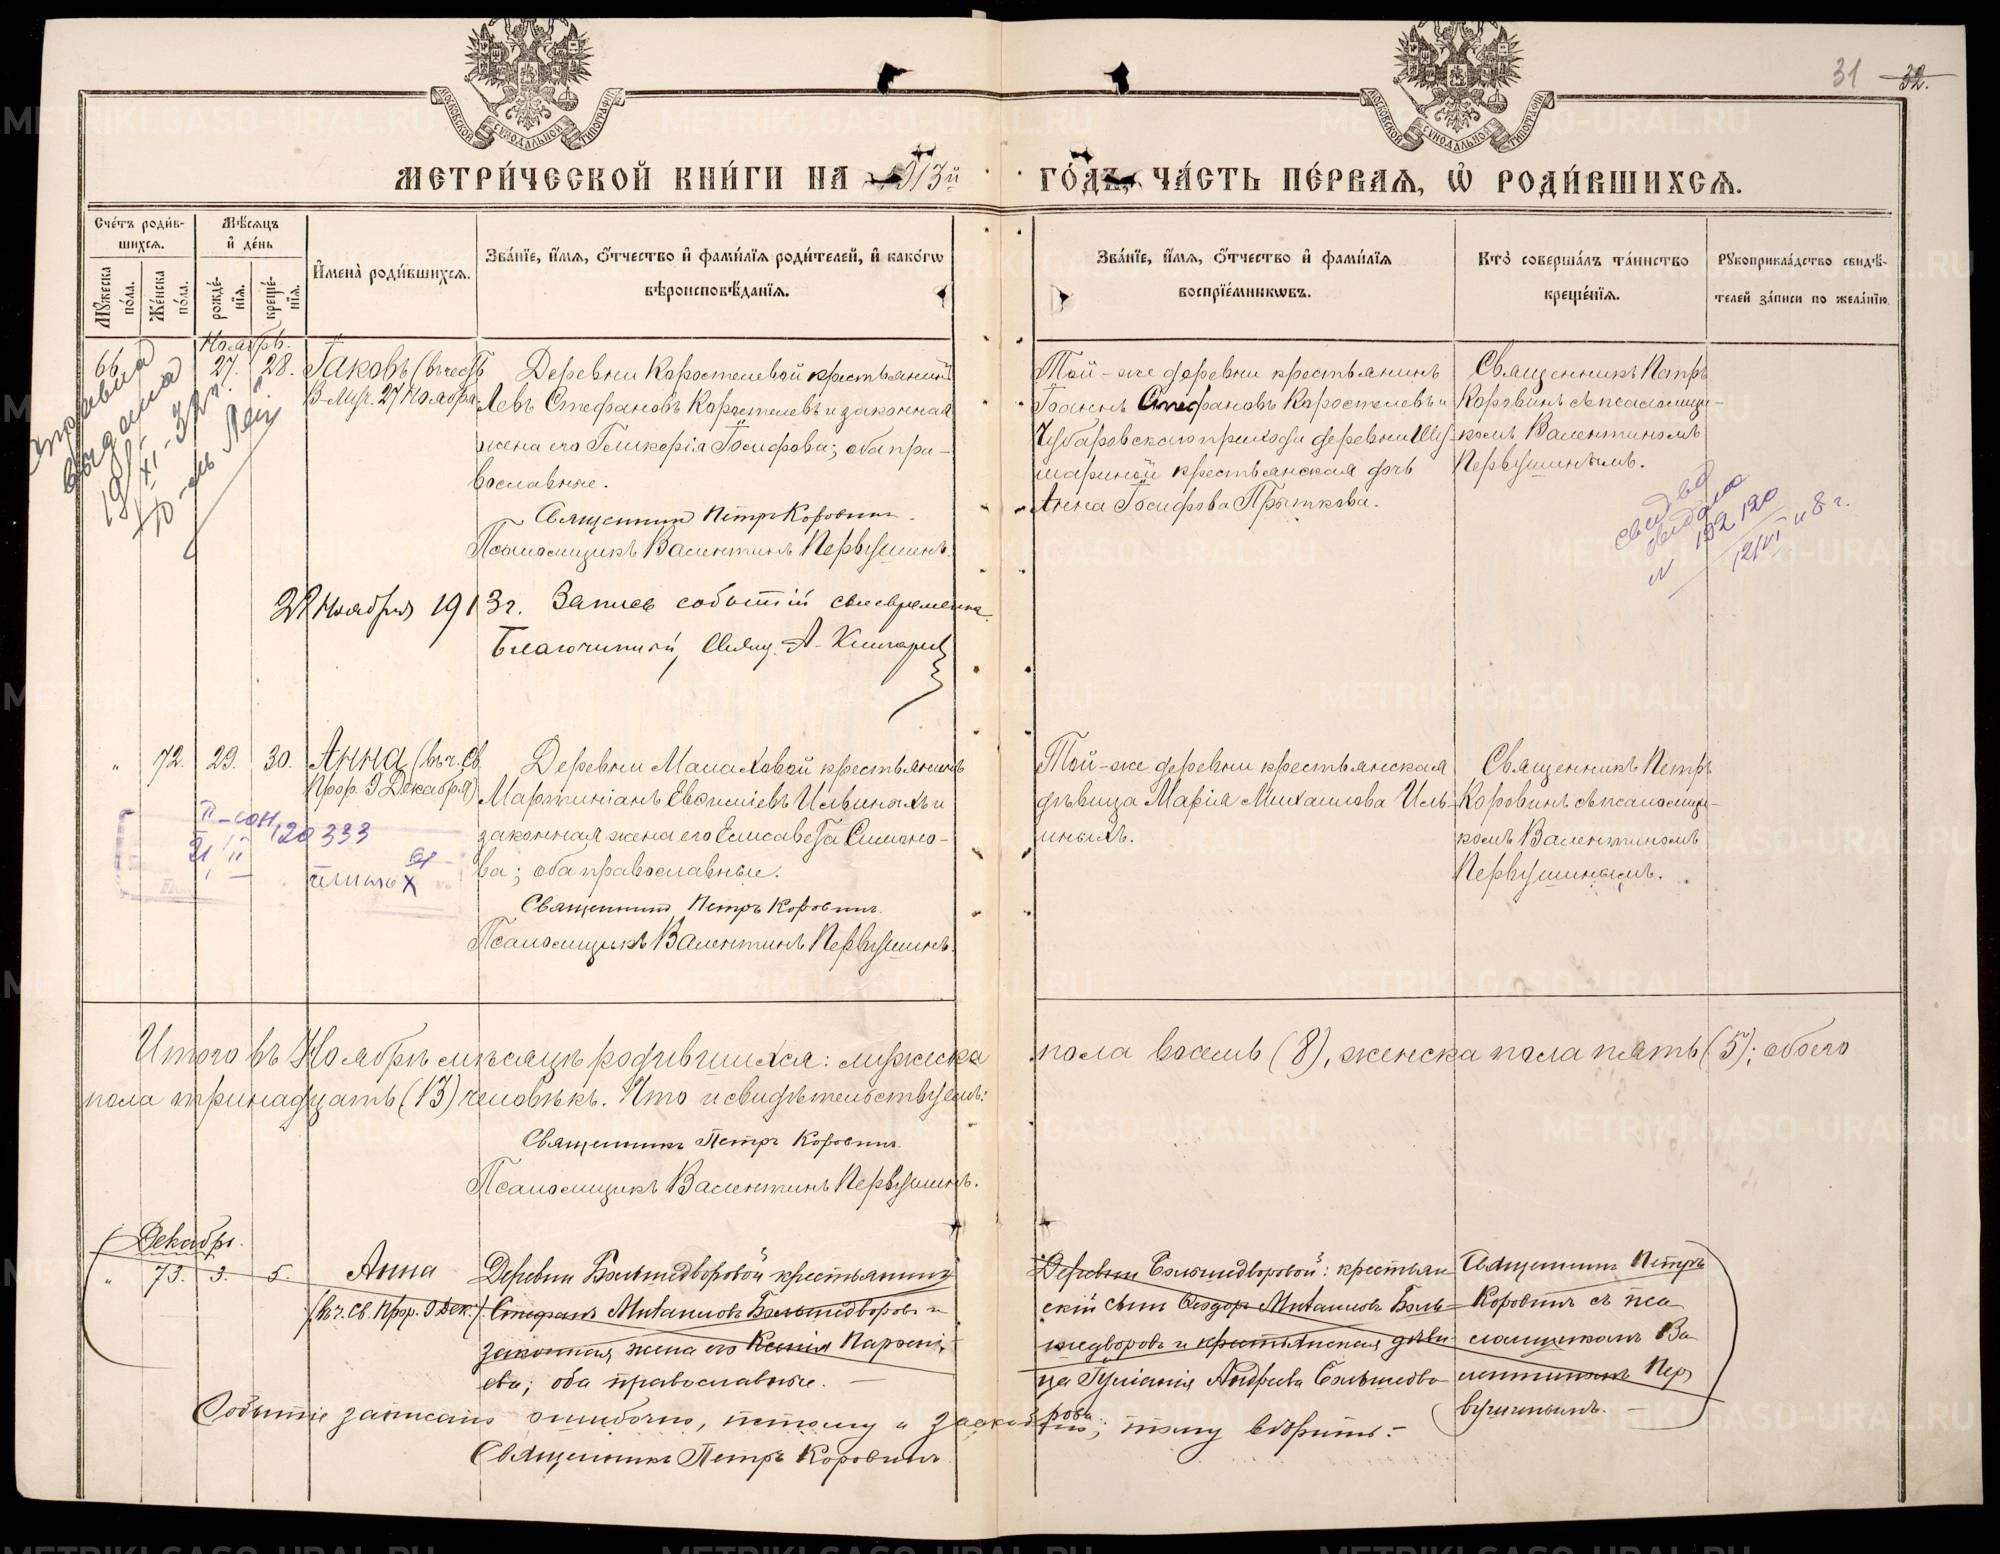 31 32.
МОСКОВСКОЙ СѴНОДАЛЬНОЙ ТИПОГРАФІИ
МОСКОВСКОЙ СѴНОДАЛЬНОЙ ТИПОГРАФІИ
МЕТРИ́ЧЕСКОЙ КНИ́ГИ НА 1913й ГО́ДЪ, ЧА́СТЬ ПЕ́РВАЯ, Ѡ҆ РОДИ́ВШИХСЯ.
Сче́тъ роди́в-
шихся.
Мѣ́сяцъ
и҆ де́нь
Мꙋ́жеска по́ла.
Же́нска по́ла.
рожде́-
нїя.
креще́-
нїя.
И҆мена̀ роди́вшихся.
Зва́нїе, и҆́мя, ѻ҆́тчество и҆ фами́лїя роди́телей, и҆ како́гѡ
вѣроисповѣ́данїя.
Зва́нїе, и҆́мя, ѻ҆́тчество и҆ фами́лїя
воспрїе́мникѡвъ.
Кто̀ соверша́лъ та́инство
креще́нїя.
Рꙋкоприкла́дство свидѣ́-
телей за́писи по жела́нїю
Ноябрь.
66 27. 28. Іаковъ (въ честь
В-муч. 27 Ноября
Деревни Коростелевой крестьянинъ
Левъ Стефановъ Коростелевъ и законная
жена его Гликерія Іосифова; оба пра-
вославные.
Священникъ Петръ Коровинъ.
Псаломщикъ Валентинъ Первушинъ.
Той-же деревни крестьянинъ
Іоаннъ Стефановъ Коростелевъ и
Чубаровскаго прихода деревни Шу-
мариной крестьянская дочь
Анна Іосифова Пряткова.
Священникъ Петръ
Коровинъ съ псаломщи-
комъ Валентиномъ
Первушинымъ.
справка
выдана
19/XI-32 г.
свид во
выдано
N 192120
12/VI 48 г.
28 Ноября 1913 г. Запись событій своевременна.
Благочинный, Свящ. А.
" 72. 29. 30. Анна (въ ч. Св.
Прор. 9 Декабря)
Деревни Малаховой крестьянинъ
Мартиніанъ Евоиміевъ Ильиныхъ и
законная жена его Елисавета Симоно-
ва; оба православные.
Священникъ Петръ Коровинъ.
Псаломщикъ Валентинъ Первушинъ.
Той-же деревни крестьянская
дѣвица Марія Михаилова Иль-
иныхъ.
Священникъ Петръ
Коровинъ съ псаломщи-
комъ Валентиномъ
Первушинымъ.
120333
Итого въ Ноябрѣ мѣсяцѣ родившихся: мужеска пола восемь (8), женска пола пять (5); обоего
пола тринадцать (13) человѣкъ. Что и свидѣтельствуемъ:
Священникъ Петръ Коровинъ.
Псаломщикъ Валентинъ Первушинъ.
Декабрь.
" 73. 3. 5. Анна
(въ ч. Св. Прор. 9 Дек.)
Деревни Большедворовой крестьянинъ
Стефанъ Михаиловъ Большедворовъ и
законная жена его Ксенія Парѳені-
ева; оба православные.
Деревни Большедворовой: крестьян
скій сынъ Ѳеодоръ Михаиловъ Боль-
шедворовъ и крестьянская дѣви-
ца Іуліанія Андреева Большедво-
рова.
Священникъ Петръ
Коровинъ съ пса
ломщикомъ Ва
лентиномъ Пер
вушинымъ.
Событіе записано ошибочно, потому и зачеркнуто; тому вѣрить.
Священникъ Петръ Коровинъ
METRIKI.GASO-URAL.RU